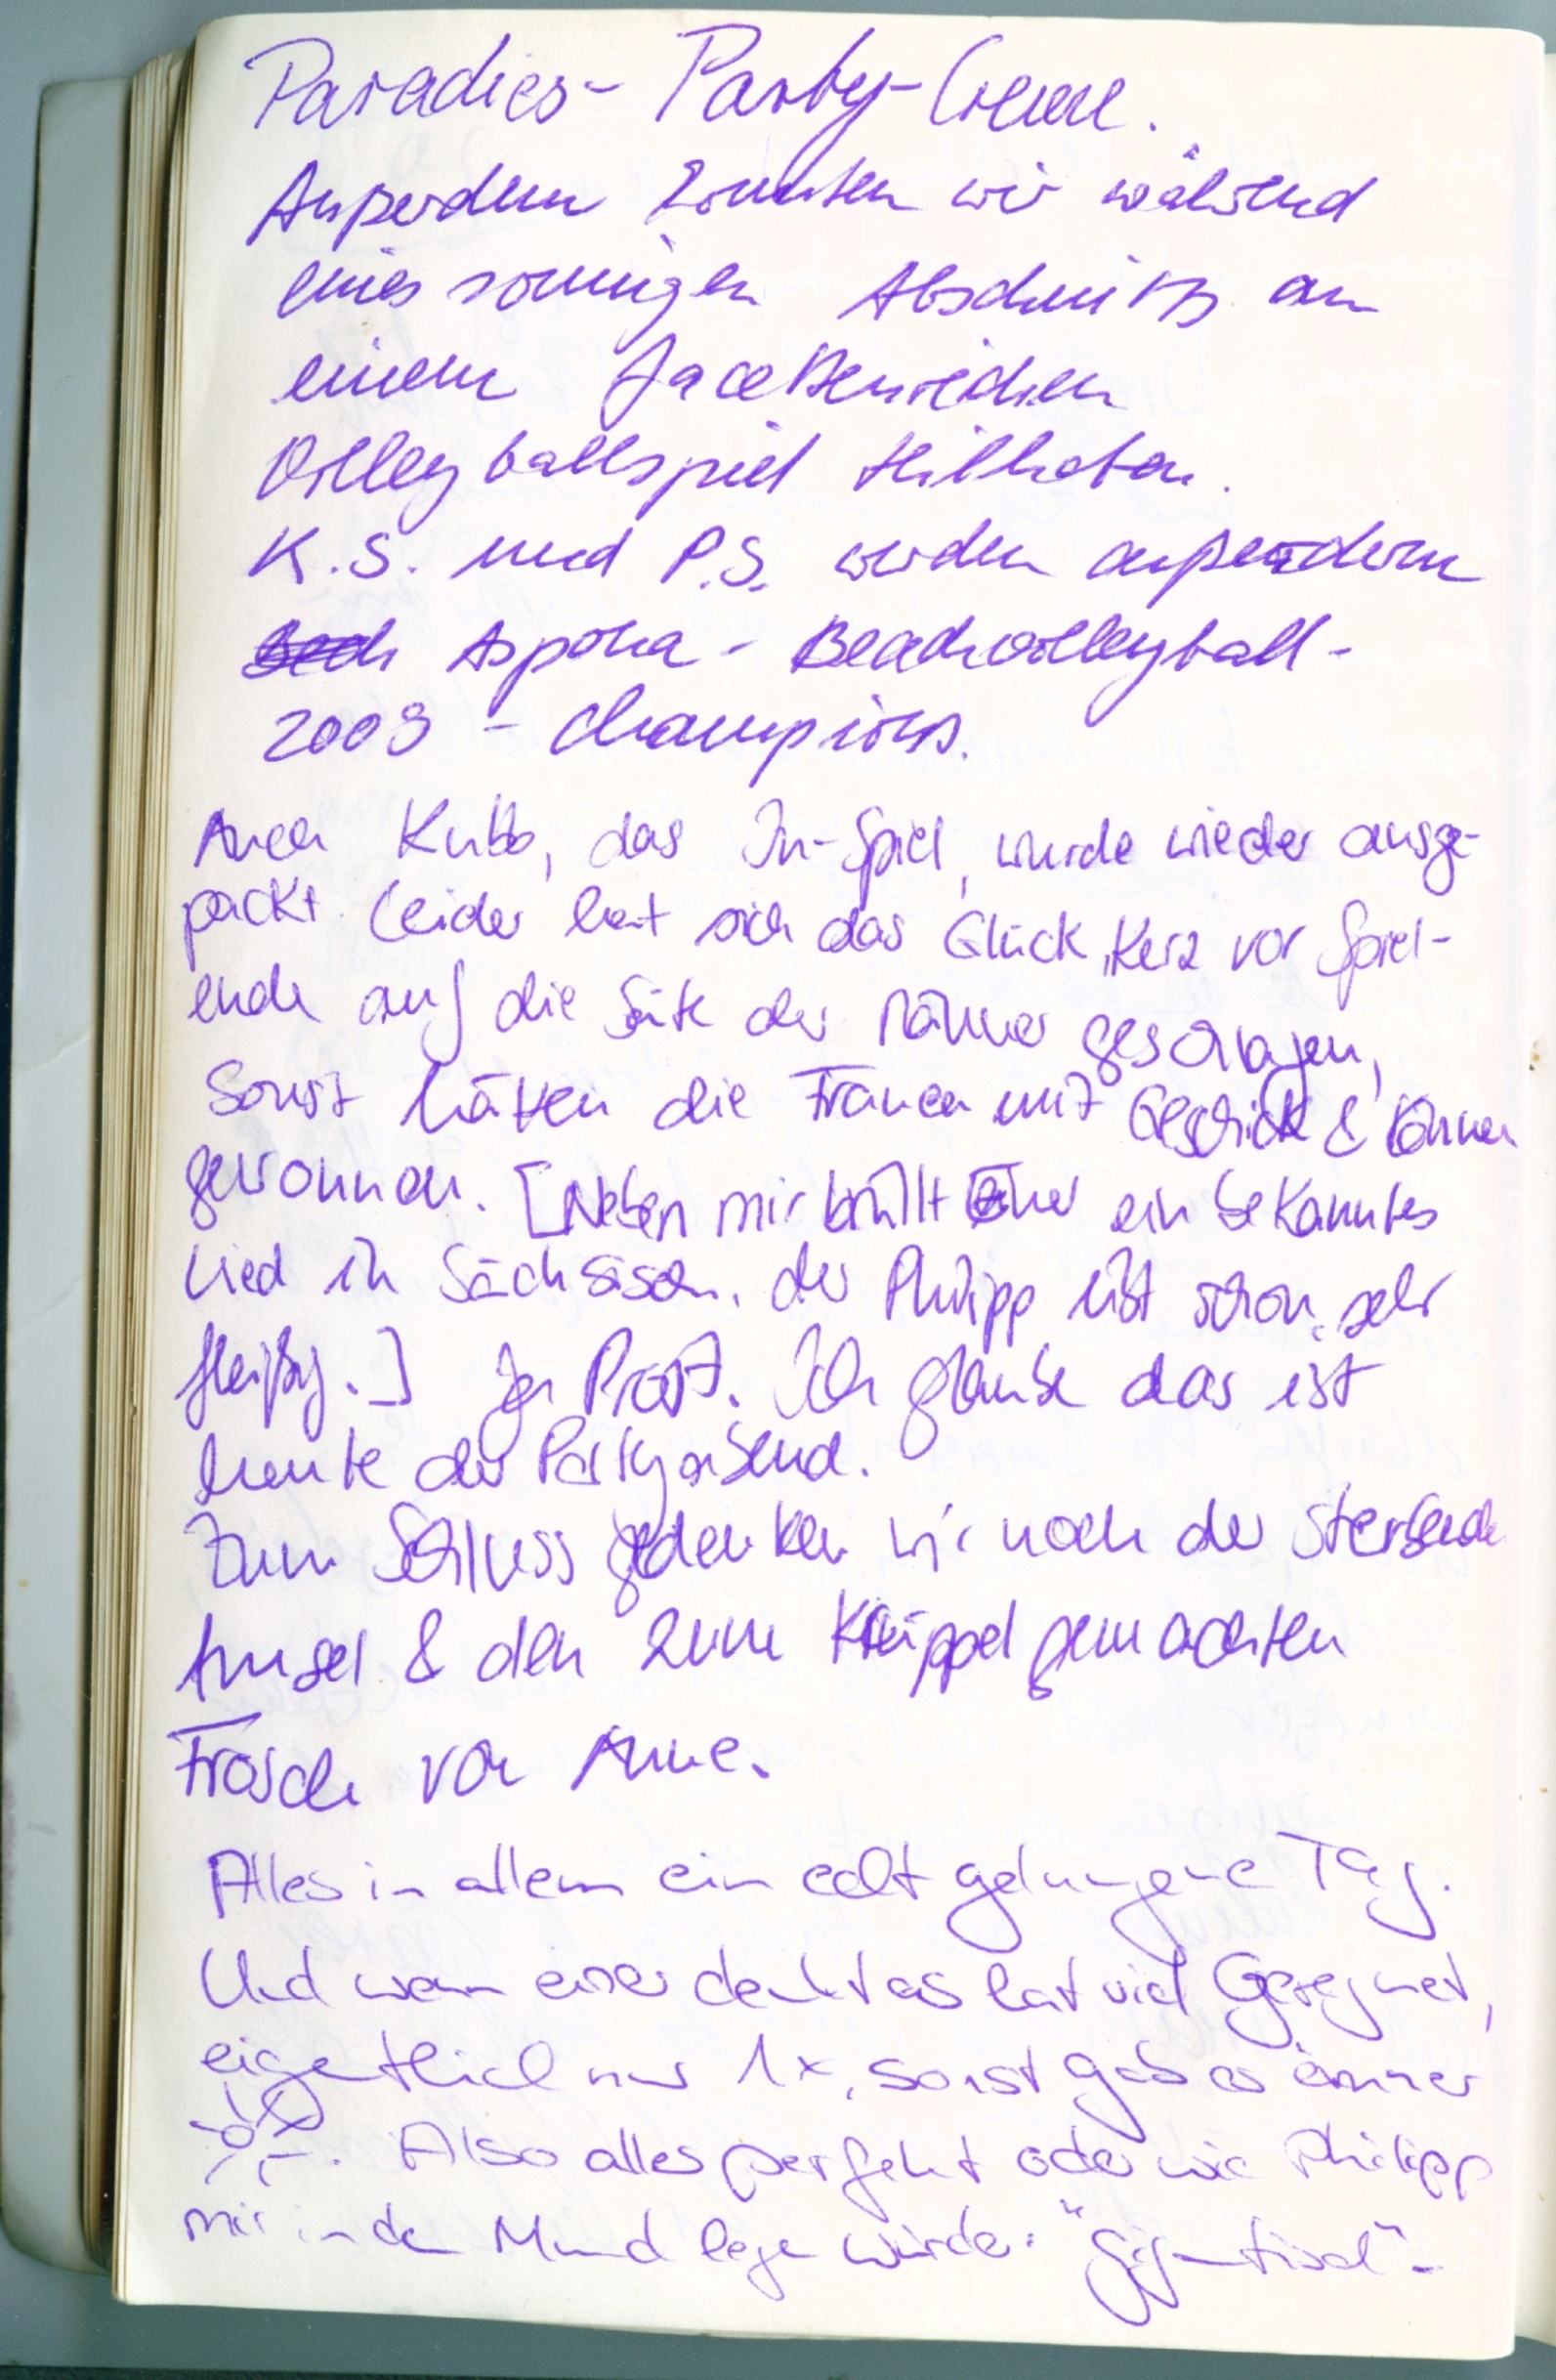 Paradies-Party-Creme.
Außerdem konnten wir während
eines sonnigen Abschnitts an
einem facettenreichen
Volleyballspiel teilhaben.
K.S. und P.S. wurden außerdem
Aspona-Beachvolleyball-
2009-Champions.
Auch Kubb, das In-Spiel, wurde wieder ausge-
packt. Leider hat sich das Glück, kurz vor Spiel-
ende auf die Seite der Männer geschlagen,
Sonst hätten die Frauen mit Geschick & Können
gewonnen. [Neben mir brüllt einer ein bekanntes
Lied in Sächsisch, der Philipp übt schon sehr
fleißig.] Ja Prost. Ich glaube das ist
heute der Partyabend.
Zum Schluss gedenken wir noch der sterbende
Amsel & den zum Krüppel gemachten
Frosch von Anne.
Alles in allem ein echt gelungene Tag.
Und wenn einer denkt es hat viel Geregnet,
eigentlich nur 1x, sonst gab es immer
. Also alles perfekt oder wie Philipp
mir in den Mund legen würde: "gigantisch".